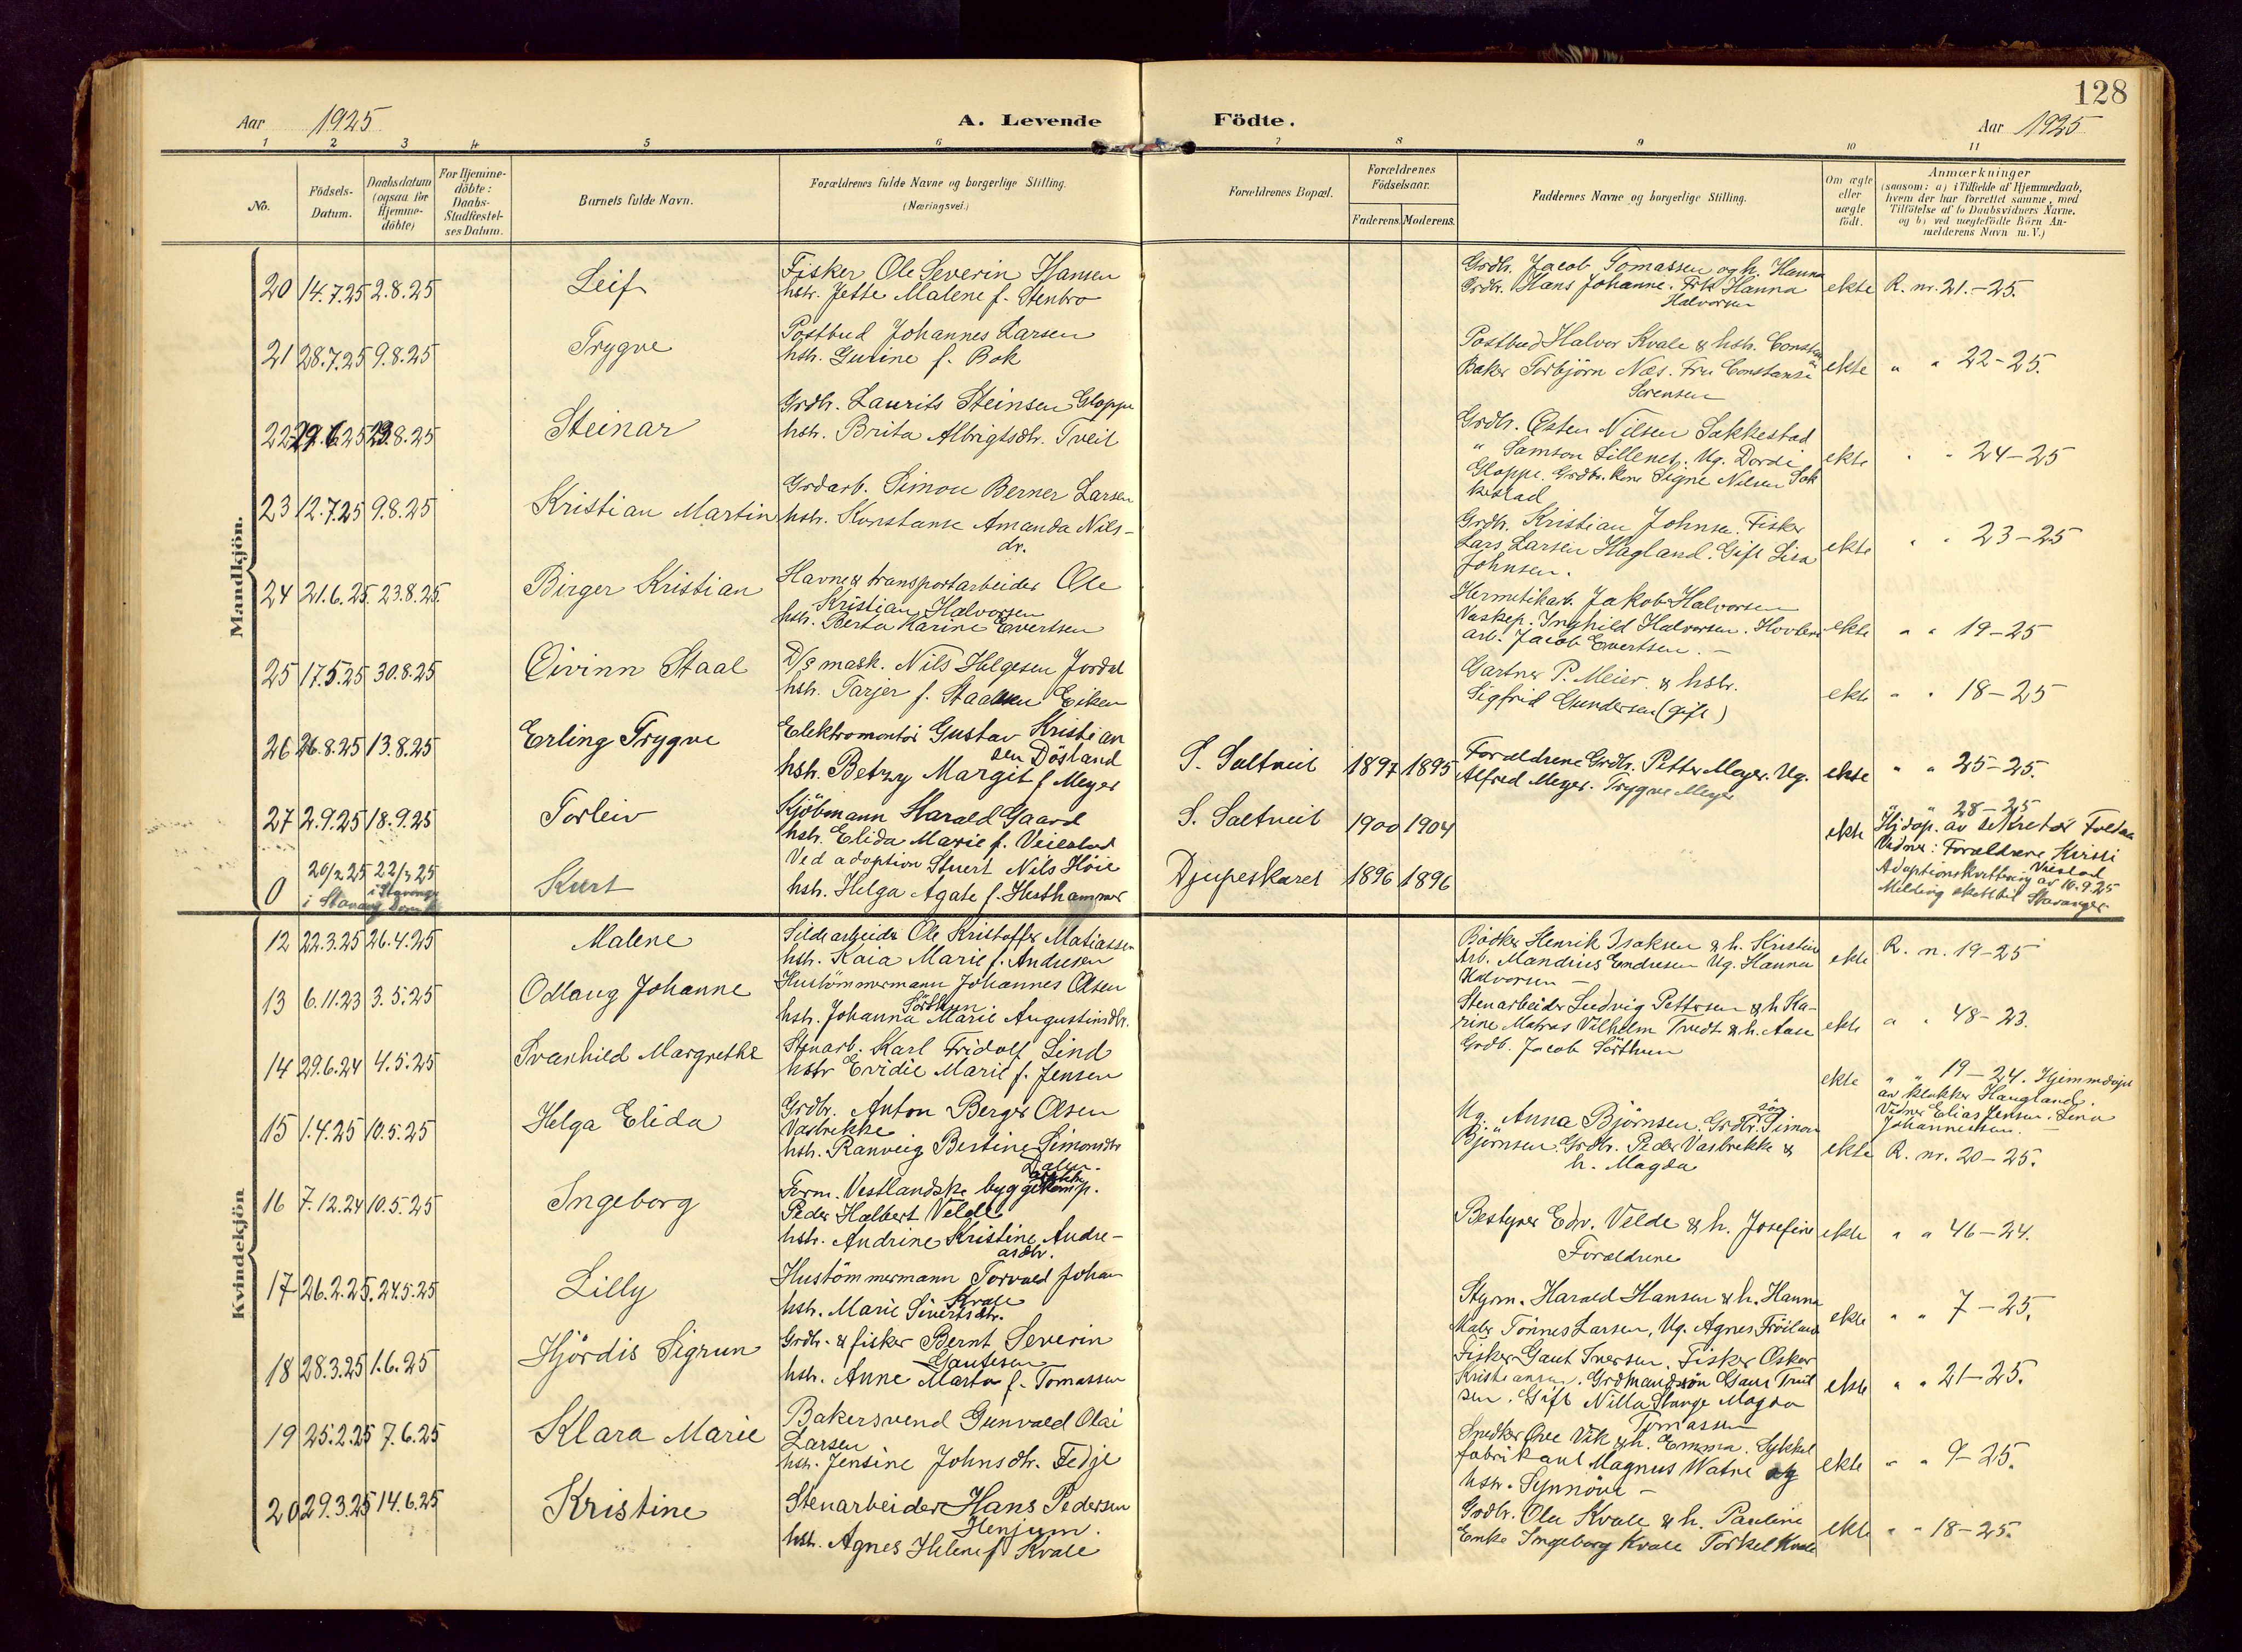 128
Aar 1925
A. Levende Födte.
Aar 1925
1 2 3 4 5 6 7 8 9 10 11
No.
Födsels-
Datum.
Daabsdatum
(ogsaa for
Hjemme-
döbte)
For Hjemme-
döbte:
Daabs-
Stadfæstel-
ses Datum.
Barnets fulde Navn.
Forældrenes fulde Navne og borgerlige Stilling.
(Næringsvei.)
Forældrenes Bopæl.
Forældrenes
Födselsaar.
Faderens. Moderens.
Faddernes Navne og borgerlige Stilling.
Om ægte
eller
uægte
födt.
Anmærkninger
(saasom: a) i Tilfælde af Hjemmedaab,
hvem der har forrettet samme, med
Tilföielse af to Daabsvidners Navne,
og b) ved uægtefödte Börn An-
melderens Navn m.V.)
Mandkjön.
20 14.7.25 2.8.25 Leif
Fisker Ole Severin Hansen
hstr. Jette Malene f. Stenbro
Grdbr. Jacob Tomassen og h. Hanna
Grdbr. Hans Johanne. Frk Hanna
Halvorsen
ekte R. nr. 21.-25.
21 28.7.25 9.8.25 Trygve
Postbud Johannes Larsen
hstr. Gurine f. Bok
Postbud Halvor Kvale & hstr.
Baker Torbjörn Næs. Fru Constanse
Sørensen
ekte " " 22-25.
22 25 8.25 Steinar
Grdbr. Laurits Steinsen Gloppe
hstr. Brita Albrigtsdtr. Tveit
Grdbr. Østen Nilsen Sakkestad
" Samson Lillenes. Ug. Dordi
Gloppe. Grdbr. kone Signe Nilsen Sak
kestad
ekte " " 24-25
23 12.7.25 9.8.25 Kristian Martin
Grdarb. Simon Berner Larsen
hstr. Konstanse Amanda Nils-
dr.
Grdbr. Kristian Johnsen. Fisker
Lars Larsen Hagland. Gift Lisa
Johnsen.
ekte " " 23-25
24 21.6.25. 23.8.25. Birger Kristian
Havne & transportarbeider Ole
Kristian Halvorsen
hstr. Berta Karine Evertsen
Hermetikarb. Jakob Halvorsen
Vaskep. Inghild Halvorsen.
arb. Jacob Evertsen. -
ekte " " 19-25
25 17.5.25 30.8.25 Eivinn Staal
D/s mask. Nils Helgesen Jordal
hstr. Tarjer f. Eiken
Gartner P. Meier. & hstr.
Sigfrid Gundersen (gift)
ekte " " 18-25
26 26.8.25 13.8.25 Erling Trygve
Elektromontör Gustav Kristian
sen Dösland
hstr. Betzy Margit f. Meyer
S. Saltveit 1897 1895
Forældrene Grdbr. Petter Meyer. Ug.
Alfred Meyer. Trygve Meyer
ekte " " 25-25.
27 2.9.25 18.9.25 Torleiv
Kjöbmann Harald Gaard
hstr. Elida Marie f. Veiestad
S. Saltveit 1900 1904
ekte " " 28-25
Hjdøp. av sekretær
Vidner: Forældrene Kirsti
0 20/2 25 22/3 25 Kurt
i Stavanger
Ved adoption Stuert Nils Höie
hstr. Helga Agate f. Husthammer
Djupeskaret 1896 1896
Adoptionskvittering av 16.9.25
Stavanger
Kvindekjön
12 22.3.25 26.4.25 Malene
Sildearbeider Ole Kristoffer Matiassen
hstr. Kaia Marie f. Andresen
Bödker Henrik Isaksen & h. Kristine
Arb. Mandius Endresen Ug. Hanna
Halvorsen -
ekte R. n. 19-25
13 6.11.23 3.5.25 Odlaug Johanne
Hustömmermann Johannes Olsen
Sörthun.
hstr. Johanna Marie Augustinsdtr.
Stenarbeider Ludvig Pettersen & h Ka-
rine Matros Vilhelm Tvedt & h. Aase
Grdb. Jacob Sörthun
ekte " " 48-23.
14 29.6.24 4.5.25 Svanhild Margrethe
Stenarb. Karl Fridolf Lind
hstr Evidie Marie f. Jensen
ekte " " 19-24. Hjemmedøpt
av klokker Haugland.
Vidner Elias Jensen. Lina
Johannessen. -
15 1.4.25 10.5.25 Helga Elida
Grdbr. Anton Berger Olsen
Vasbrekke
hstr. Ranveig Bertine Simonsdtr
Ug. Anna Björnsen. Grdbr. Simon
Björnsen. Grdbr. Peder Vasbrekke &
h. Magda
ekte R. nr. 20-25.
16 7.12.24 10.5.25 Ingeborg
Form. Vestlandske byggekomp.
Peder Halbert Velde
hstr. Andrine Kristine Andre-
asdtr.
Bestyrer Edv. Velde & h. Josefine
Forældrene
ekte " " 46-24.
17 26.2.25. 24.5.25 Lilly
Hustömmermann Torvald Johan
Kvale
hstr. Marie Sivertsdtr.
Styrm. Harald Hansen & h. Hanna
Maler Tönnes Larsen, Ug. Agnes Fröiland
ekte " " 7-25.
18 28.3.25 1.6.25 Hjördis Sigrun
Grdbr. & fisker Bernt Severin
Gautesen
hstr. Anne Marta f. Tomassen
Fisker Gaut Iversen. Fisker Oskar
Kristiansen. Grdmandssön Gaut
sen. Gift Nilla Stange Magda
Tomassen
ekte " " 21-25.
19 25.2.25 7.6.25 Klara Marie
Bakersvend Gunvald Olai
Larsen
hstr. Jensine Johnsdtr. Fedje
Snedker Ove Vik & h. Emma. Sykkel
fabrikant Magnus Watne og
hstr. Synnöve -
ekte " " 9-25.
20 29.3.25 14.6.25 Kristine
Stenarbeider Hans Pedersen
Henjum.
hstr. Agnes Helene f. Kvale
Grdbr. Ole Kvale & h. Pauline
Enke Ingeborg Kvale Torkel Kvale
ekte " " 18-25.